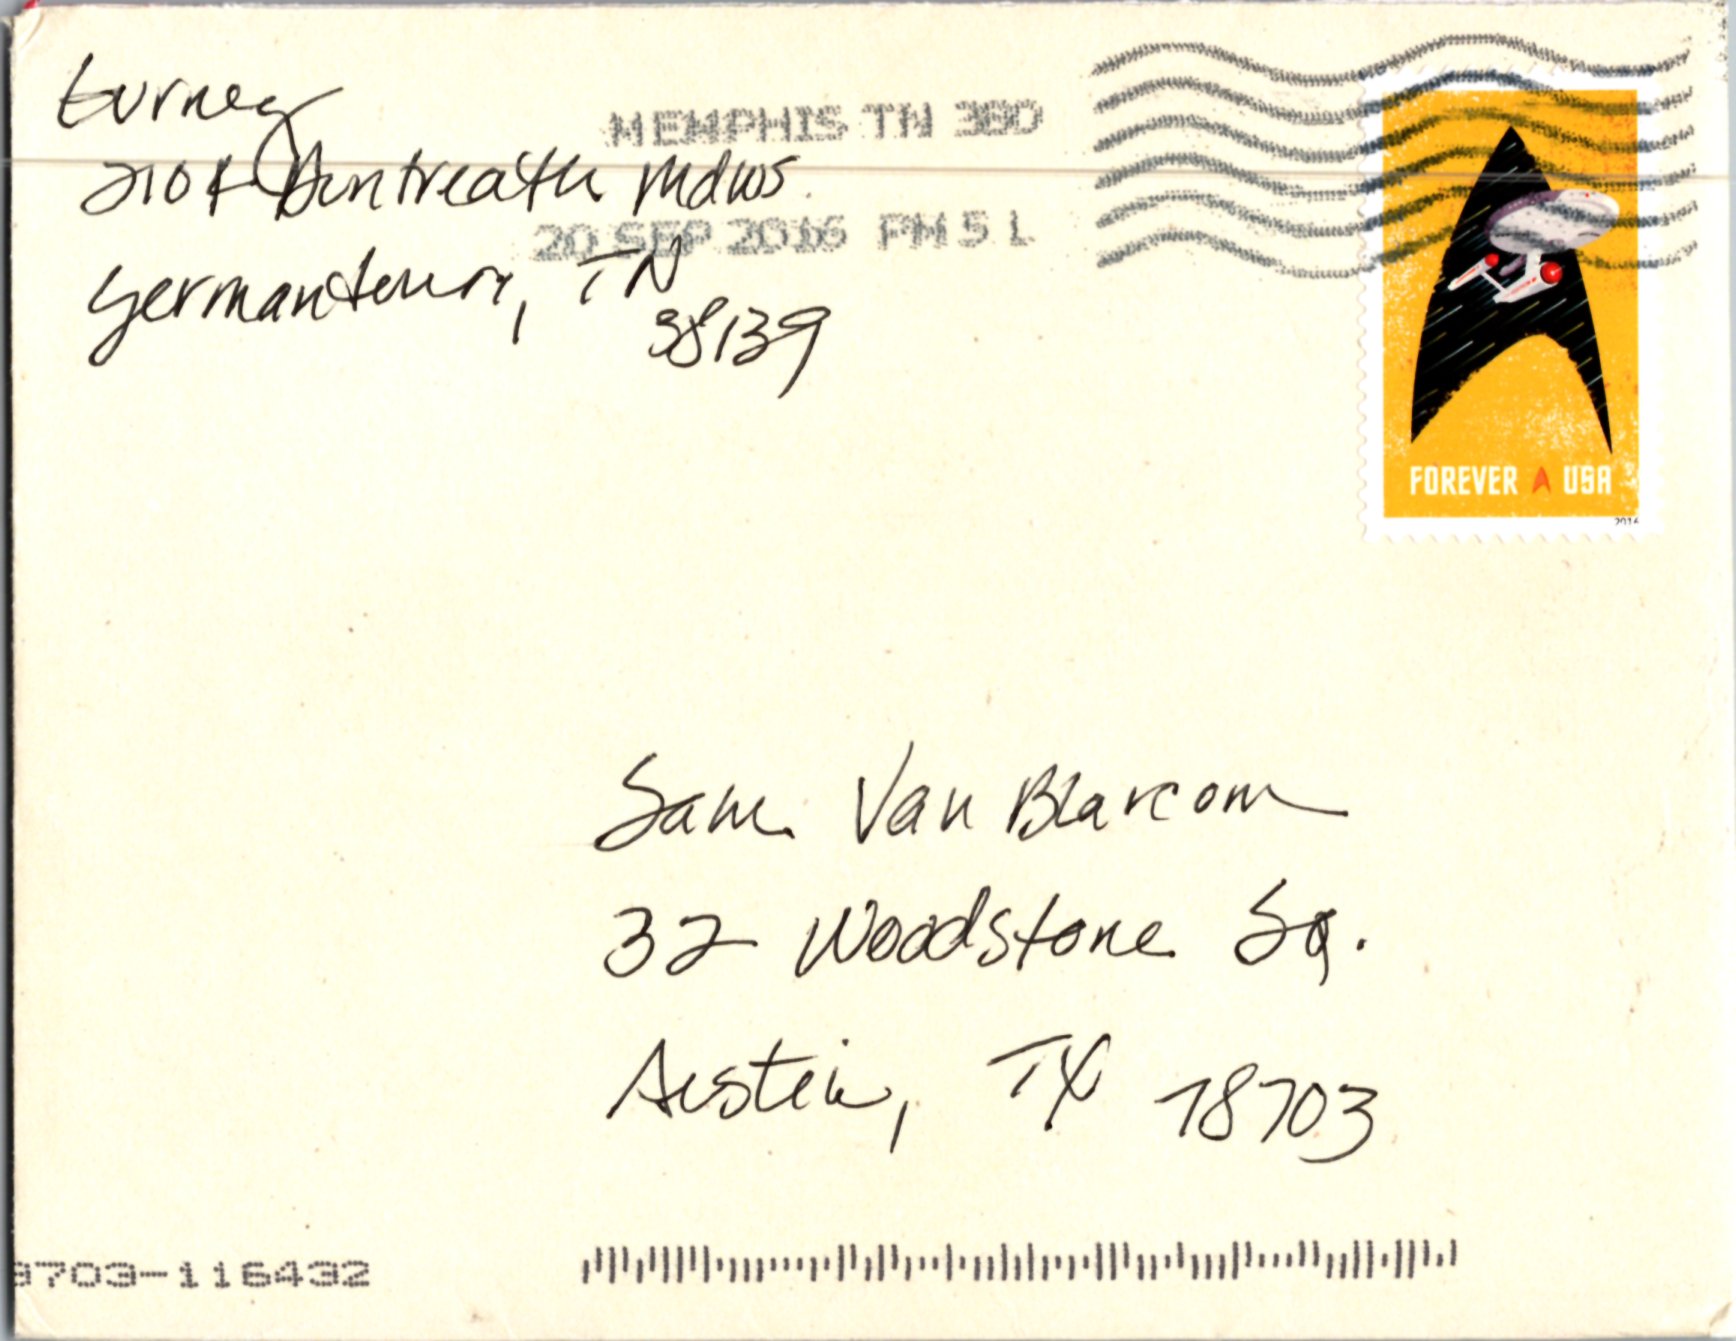 Gurney
Mdws
Germantown, TN
38139
MEMPHIS TN 380
20 SEP 2016 PM 5 L
FOREVER USA
2016
Sam Van Blarcom
32 Woodstone Sq.
Austin, TX 78703
8703-116432